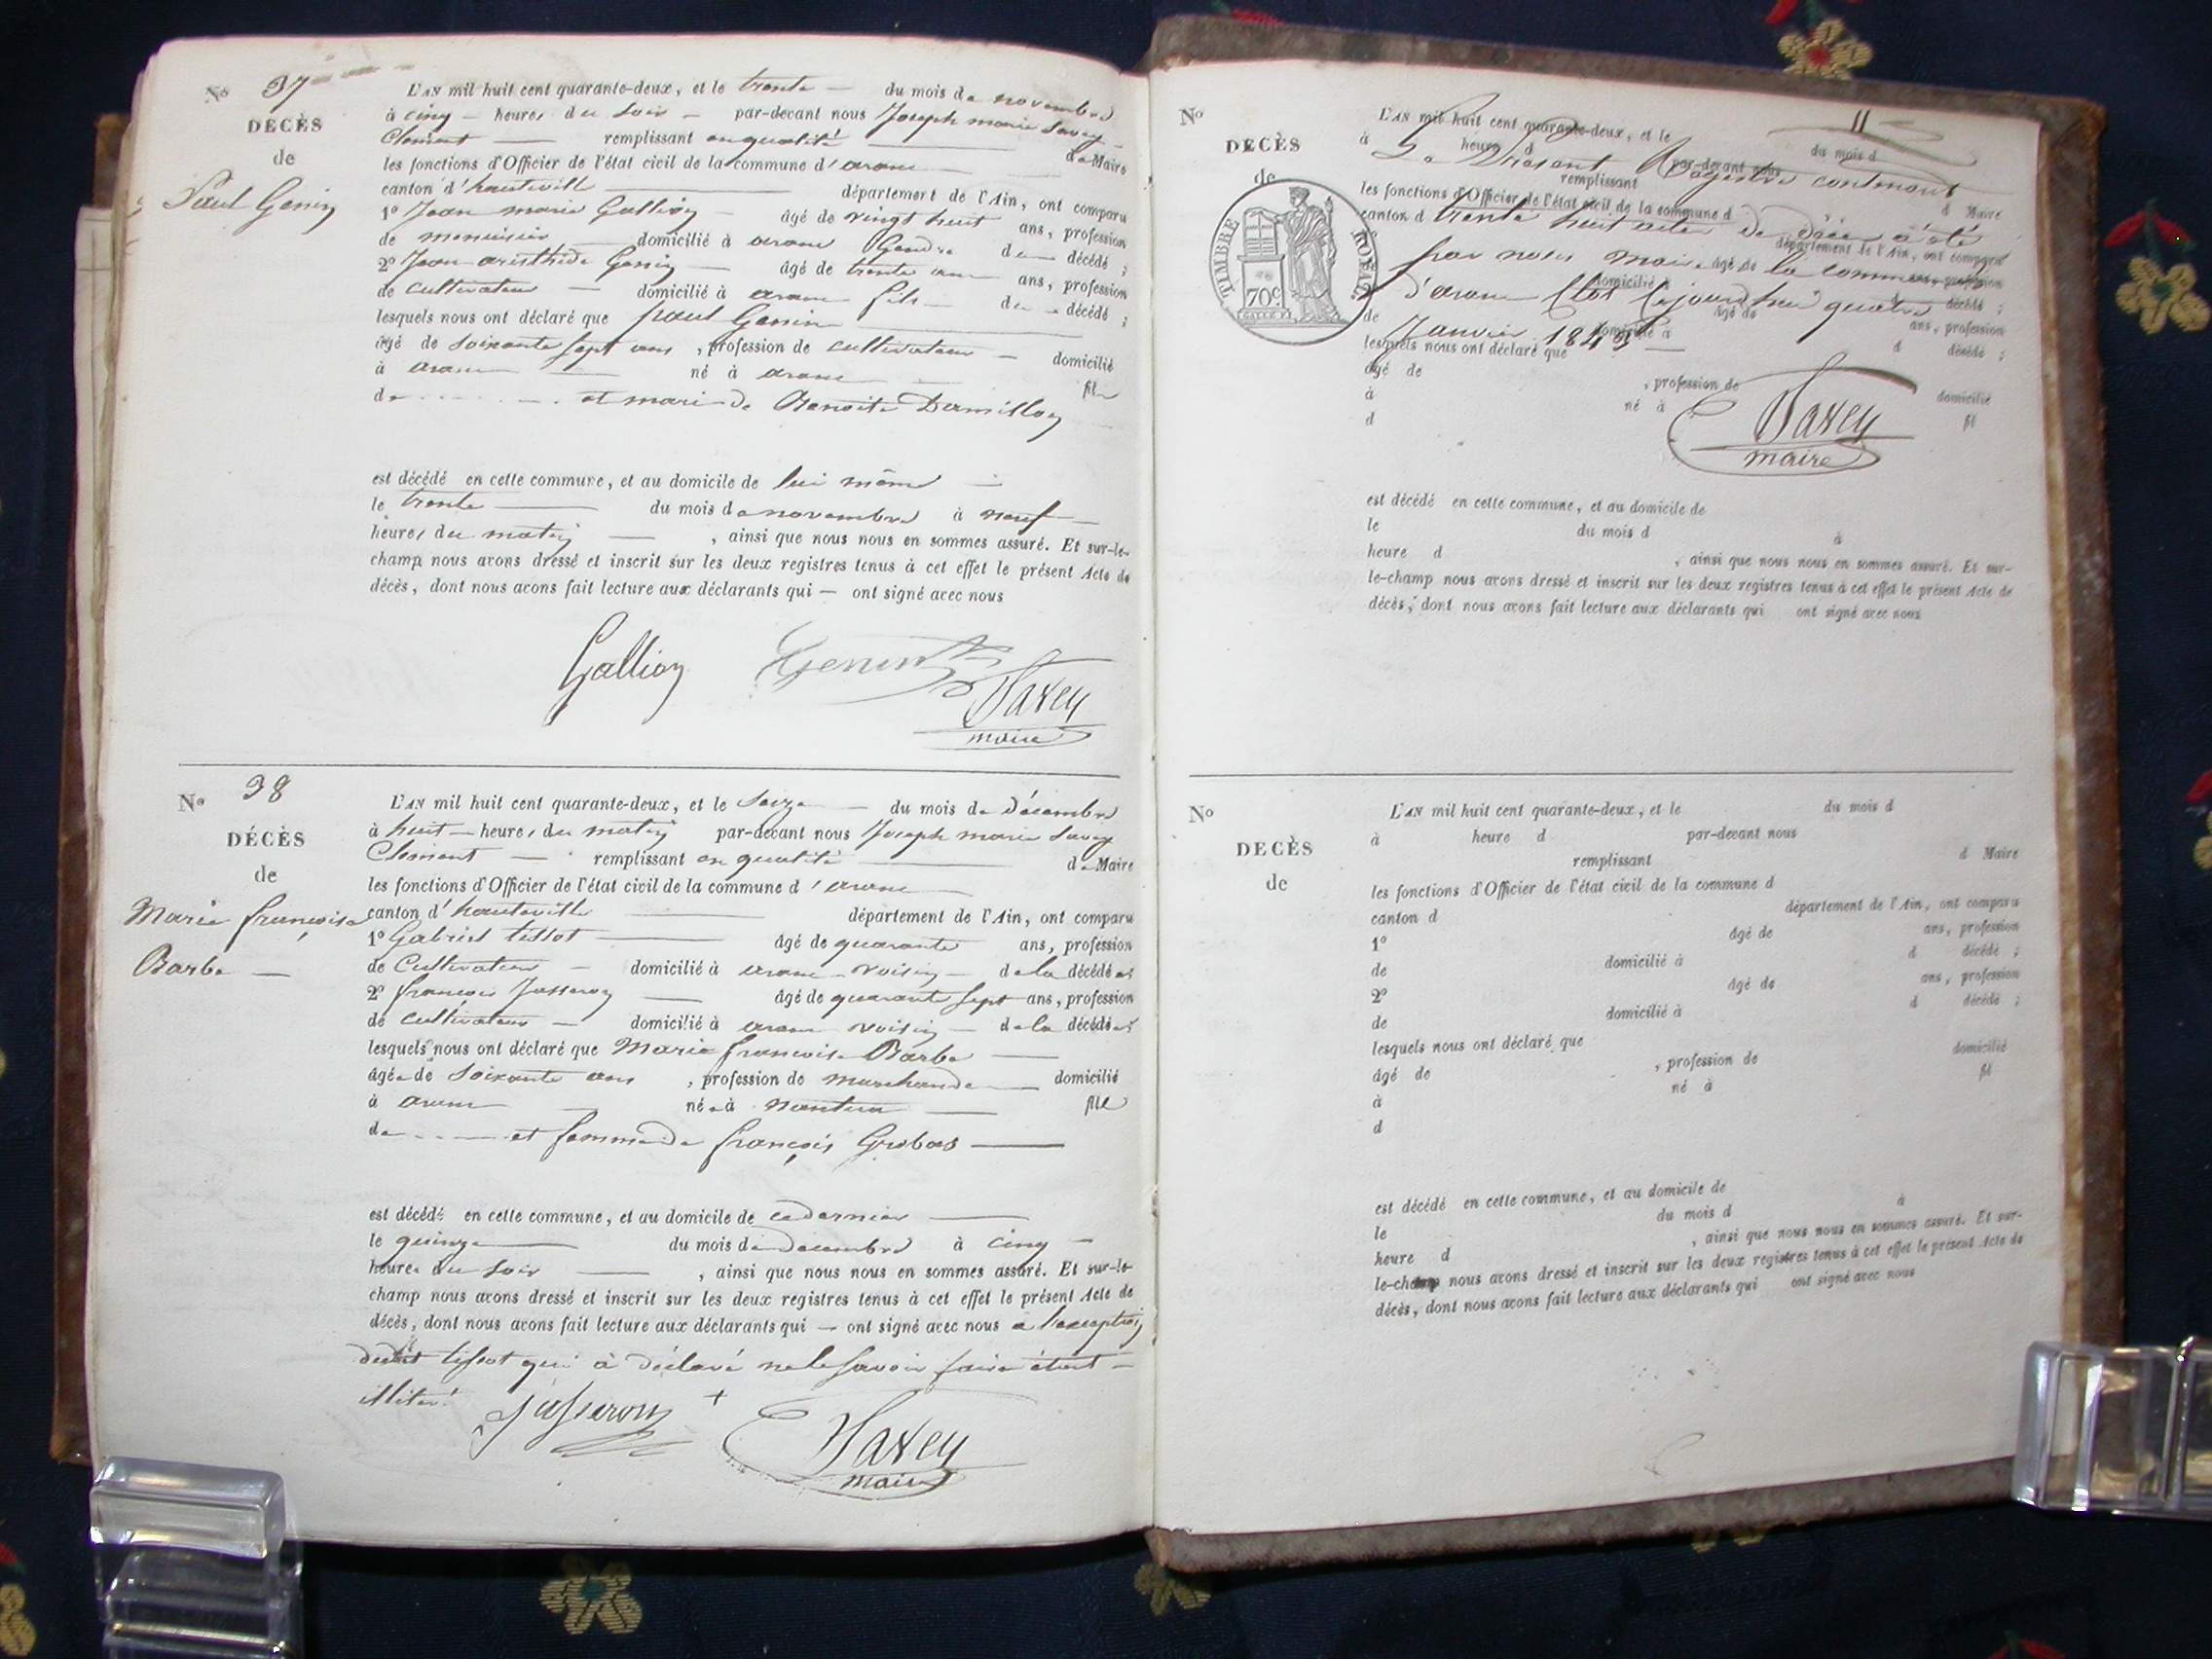 No 37
DECÈS
de
Paul Genin
L'AN mil huit cent quarante-deux, et le trente du mois de novembre
à cinq heures du soir par-devant nous Joseph marie Savey
Clement remplissant en qualité de Maire
les fonctions d'Officier de l'état civil de la commune d'aranc
canton d'hauteville département de l'Ain, ont comparu
1º Jean marie Gallion âgé de vingt huit ans, profession
de menuisier domicilié à aranc Gendre du décédé ;
2º Jean aristhide Genin âgé de trente ans, profession
de cultivateur domicilié à aranc fils du décédé ;
lesquels nous ont déclaré que paul Genin
âgé de soixante sept ans, profession de cultivateur domicilié
à aranc né à aranc fils
de et mari de Benoite Dumillon
est décédé en cette commune, et au domicile de lui même
le trente du mois de novembre à neuf
heures du matin, ainsi que nous nous en sommes assuré. Et sur-le-
champ nous avons dressé et inscrit sur les deux registres tenus à cet effet le présent Acte de
décès, dont nous avons fait lecture aux déclarants qui — ont signé avec nous
Gallion Genin Savey
maire
No 38
DÉCÈS
de
Marie françoise
Barbe
L'AN mil huit cent quarante-deux, et le seize du mois de Décembre
à huit heures du matin par-devant nous Joseph marie Savey
Clement remplissant en qualité de Maire
les fonctions d'Officier de l'état civil de la commune d'aranc
canton d'hauteville département de l'Ain, ont comparu
1º Gabriel tissot âgé de quarante ans, profession
de Cultivateur domicilié à aranc voisin de la décédée ;
2º françois Jasseron âgé de quarante sept ans, profession
de cultivateur domicilié à aranc voisin de la décédée ;
lesquels nous ont déclaré que Marie francoise Barbe
âgée de soixante ans, profession de marchande domicilié
à aranc née à nantua fille
de et femme de françois Grobas
est décédé en cette commune, et au domicile de ce dernier
le quinze du mois de decembre à cinq
heures du soir, ainsi que nous nous en sommes assuré. Et sur-le-
champ nous avons dressé et inscrit sur les deux registres tenus à cet effet le présent Acte de
décès, dont nous avons fait lecture aux déclarants qui — ont signé avec nous a l'exception
dudit tissot qui à déclaré ne le savoir faire étant
illité. Jasseron + Savey
maire
No
DECÈS
de
TIMBRE ROYAL
70c
11
L'AN mil huit cent quarante-deux, et le du mois d
à heure d par-devant nous
Le Présent Registre contenant
remplissant d Maire
les fonctions d'Officier de l'état civil de la commune d
canton d département de l'Ain, ont comparu
trente huit actes de décès a été
par nous maire de la commune
âgé de ans, profession
domicilié à d décédé ;
d'aranc Clos Cejourd'hui quatre
âgé de ans, profession
de domicilié à d décédé ;
Janvier 1843
lesquels nous ont déclaré que
âgé de , profession de domicilié
à né à fil
d
Savey
maire
est décédé en cette commune, et au domicile de
le du mois d à
heure d , ainsi que nous nous en sommes assuré. Et sur-
le-champ nous avons dressé et inscrit sur les deux registres tenus à cet effet le présent Acte de
décès, dont nous avons fait lecture aux déclarants qui ont signé avec nous
No
DECÈS
de
L'AN mil huit cent quarante-deux, et le du mois d
à heure d par-devant nous
remplissant d Maire
les fonctions d'Officier de l'état civil de la commune d
canton d département de l'Ain, ont comparu
1º âgé de ans, profession
de domicilié à d décédé ;
2º âgé de ans, profession
de domicilié à d décédé ;
lesquels nous ont déclaré que
âgé de , profession de domicilié
à né à fil
d
est décédé en cette commune, et au domicile de
le du mois d à
heure d , ainsi que nous nous en sommes assuré. Et sur-
le-champ nous avons dressé et inscrit sur les deux registres tenus à cet effet le présent Acte de
décès, dont nous avons fait lecture aux déclarants qui ont signé avec nous